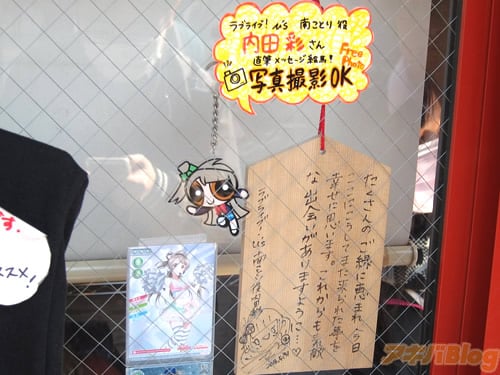 ラブライブ! μ's 南ことり役
内田 彩さん
直筆メッセージ絵馬!
Free Photo
写真撮影OK
たくさんのご縁に恵まれ、今日
ここにこうしてまた来られた事を
幸せに思います。これからも素敵
な出会いがありますように…♡
ラブライブ! μ's 南ことり役 内田彩
です。
ススメ!
アキバBlog